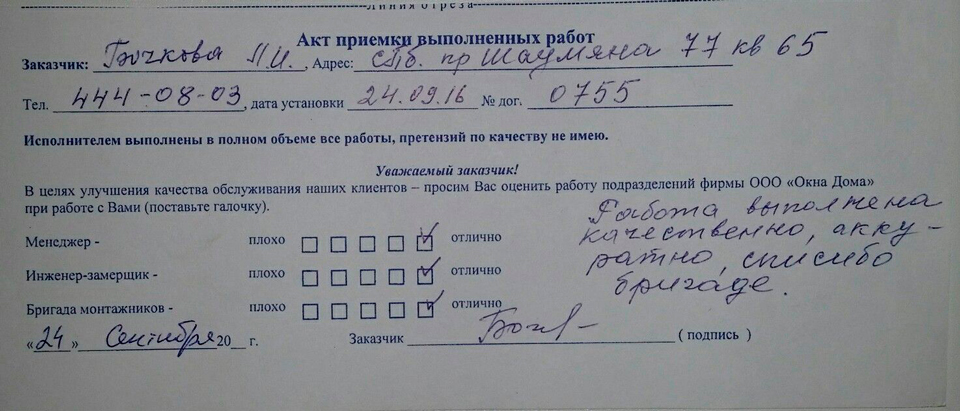 линия отреза
Акт приемки выполненных работ
Заказчик: Бочкова Л.И., Адрес: сПб. пр Шаумяна 77 кв 65
Тел. 444-08-03, дата установки 24.09.16 № дог. 0755
Исполнителем выполнены в полном объеме все работы, претензий по качеству не имею.
Уважаемый заказчик!
В целях улучшения качества обслуживания наших клиентов – просим Вас оценить работу подразделений фирмы ООО «Окна Дома»
при работе с Вами (поставьте галочку).
Менеджер - плохо отлично
Инженер-замерщик - плохо отлично
Бригада монтажников - плохо отлично
Работа выполнена
качественно, акку-
ратно, спасибо
бригаде.
«24» Сентября 20 г. Заказчик ( подпись )